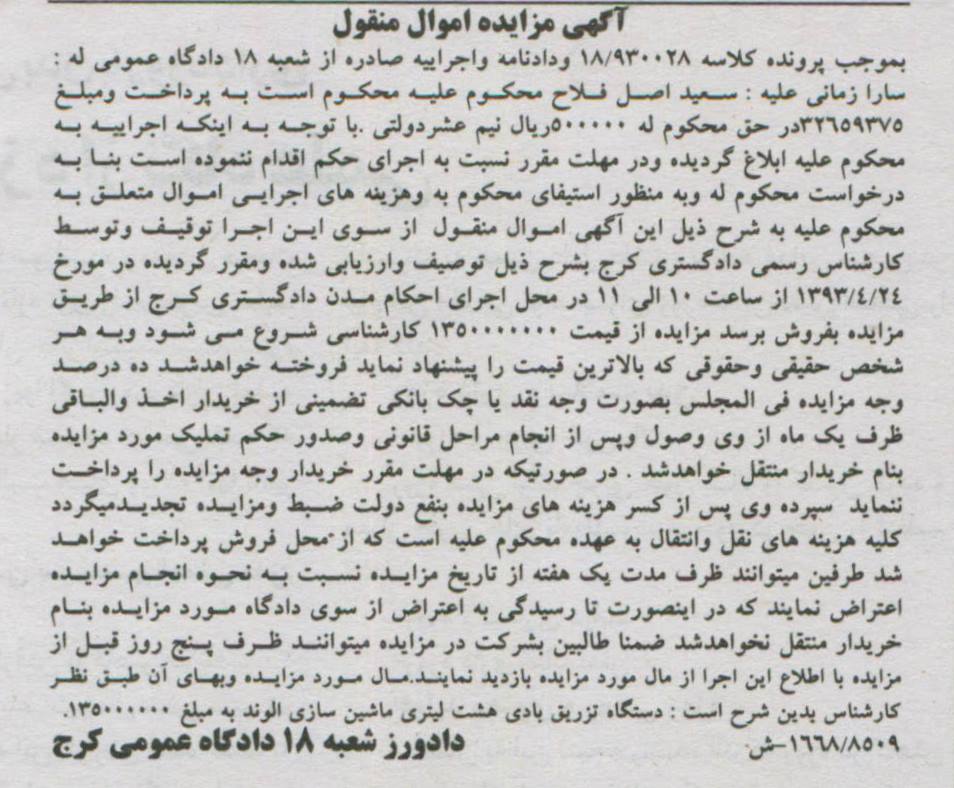 آگهی مزایده اموال منقول
بموجب پرونده کلاسه ۱۸/۹۳۰۰۲۸ ودادنامه واجراییه صادره از شعبه ۱۸ دادگاه عمومی له :
سارا زمانی علیه : سعید اصل فلاح محکوم علیه محکوم است به پرداخت ومبلغ
۳۲۶۵۹۳۷۵در حق محکوم له ۵۰۰۰۰۰ریال نیم عشردولتی .با توجه به اینکه اجراییه به
محکوم علیه ابلاغ گردیده ودر مهلت مقرر نسبت به اجرای حکم اقدام ننموده است بنا به
درخواست محکوم له وبه منظور استیفای محکوم به وهزینه های اجرایی اموال متعلق به
محکوم علیه به شرح ذیل این آگهی اموال منقول از سوی این اجرا توقیف وتوسط
کارشناس رسمی دادگستری کرج بشرح ذیل توصیف وارزیابی شده ومقرر گردیده در مورخ
۱۳۹۳/٤/۲٤ از ساعت ۱۰ الی ۱۱ در محل اجرای احکام مدن دادگستری کرج از طریق
مزایده بفروش برسد مزایده از قیمت ۱۳۵۰۰۰۰۰۰۰ کارشناسی شروع می شود وبه هر
شخص حقیقی وحقوقی که بالاترین قیمت را پیشنهاد نماید فروخته خواهدشد ده درصد
وجه مزایده فی المجلس بصورت وجه نقد یا چک بانکی تضمینی از خریدار اخذ والباقی
ظرف یک ماه از وی وصول وپس از انجام مراحل قانونی وصدور حکم تملیک مورد مزایده
بنام خریدار منتقل خواهدشد . در صورتیکه در مهلت مقرر خریدار وجه مزایده را پرداخت
ننماید سپرده وی پس از کسر هزینه های مزایده بنفع دولت ضبط ومزایده تجدیدمیگردد
کلیه هزینه های نقل وانتقال به عهده محکوم علیه است که از محل فروش پرداخت خواهد
شد طرفین میتوانند ظرف مدت یک هفته از تاریخ مزایده نسبت به نحوه انجام مزایده
اعتراض نمایند که در اینصورت تا رسیدگی به اعتراض از سوی دادگاه مورد مزایده بنام
خریدار منتقل نخواهدشد ضمنا طالبین بشرکت در مزایده میتوانند ظرف پنج روز قبل از
مزایده با اطلاع این اجرا از مال مورد مزایده بازدید نمایند.مال مورد مزایده وبهای آن طبق نظر
کارشناس بدین شرح است : دستگاه تزریق بادی هشت لیتری ماشین سازی الوند به مبلغ ۱۳۵۰۰۰۰۰۰.
۱۶۶۸/۸۵۰۹-ش دادورز شعبه ۱۸ دادگاه عمومی کرج